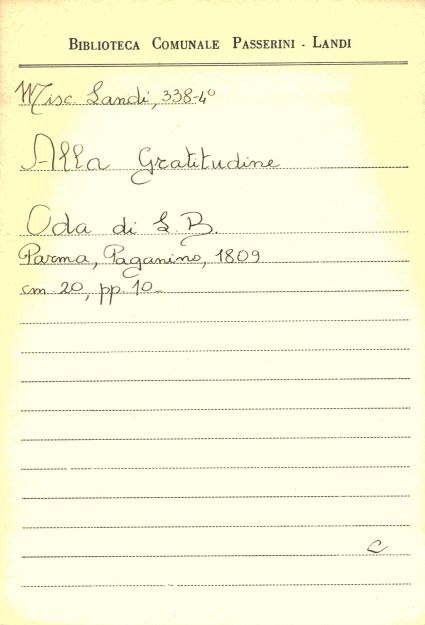 BIBLIOTECA COMUNALE PASSERINI - LANDI
Misc. Landi, 338-4°
Alla Gratitudine
Oda di L. B.
Parma, Paganino, 1809
cm 20, pp. 10-
C